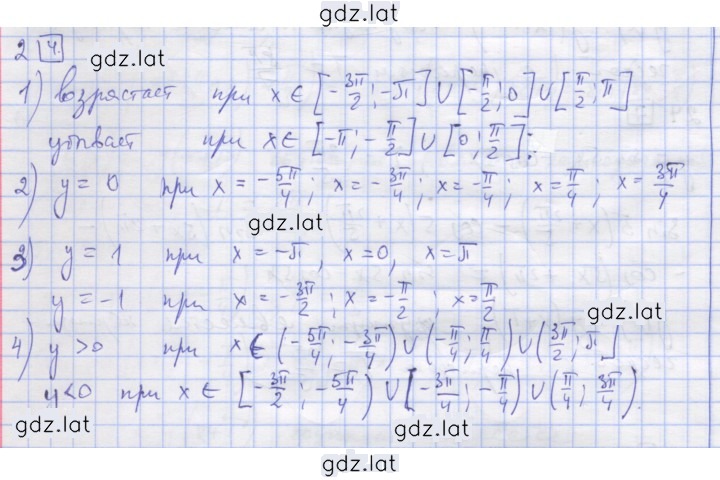 gdz.lat
2 4.
gdz.lat
1) возрастает при x ∈ [-3π/2; -π] ∪ [-π/2; 0] ∪ [π/2; π]
убывает при x ∈ [-π; -π/2] ∪ [0; π/2];
2) y = 0 при x = -5π/4; x = -3π/4; x = -π/4; x = π/4; x = 3π/4
gdz.lat
3) y = 1 при x = -π, x = 0, x = π
y = -1 при x = -3π/2; x = -π/2; x = π/2
gdz.lat
4) y > 0 при x ∈ (-5π/4; -3π/4) ∪ (-π/4; π/4) ∪ (3π/2; π]
y < 0 при x ∈ [-3π/2; -5π/4) ∪ [-3π/4; -π/4) ∪ (π/4; 3π/4).
gdz.lat
gdz.lat
gdz.lat